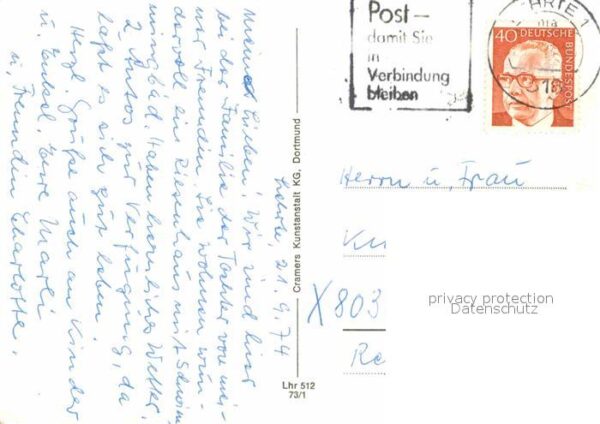 Lehrte, 21.9.74
Meine Lieben! Wir sind hier
bei der Familie der Tochter von mei-
ner Freundin. Sie wohnen wun-
dervoll ein Riesenhaus mit Schwim-
mingbad. Haben herrliches Wetter.
2 Autos zur Verfügung, da
läßt es sich gut leben.
Herzl. Grüße auch an Kinder
u. Enkel. Eure Marli
u. Freundin Charlotte.
Cramers Kunstanstalt KG, Dortmund
Lhr 512
73/1
Post –
damit Sie
in
Verbindung
bleiben
HRTE 1
40 DEUTSCHE
BUNDESPOST
Herrn u. Frau
X803
privacy protection
Datenschutz